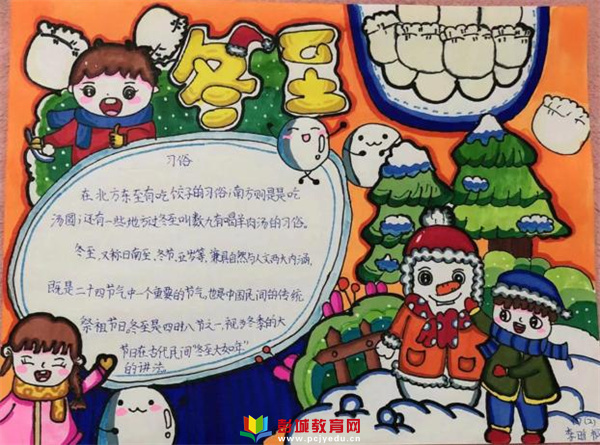 冬至
习俗
在北方冬至有吃饺子的习俗;南方则是是吃
汤圆;还有一些地方过冬至叫数九有喝羊肉汤的习俗。
冬至,又称日南至、冬节、亚岁等,兼具自然与人文两大内涵,
既是二十四节气中一个重要的节气,也是中国民间的传统
祭祖节日,冬至是四时八节之一,视为冬季的大
节日在古代民间“冬至大如年”
的讲法
(2)
李
彭城教育网
www.pcjyedu.cn